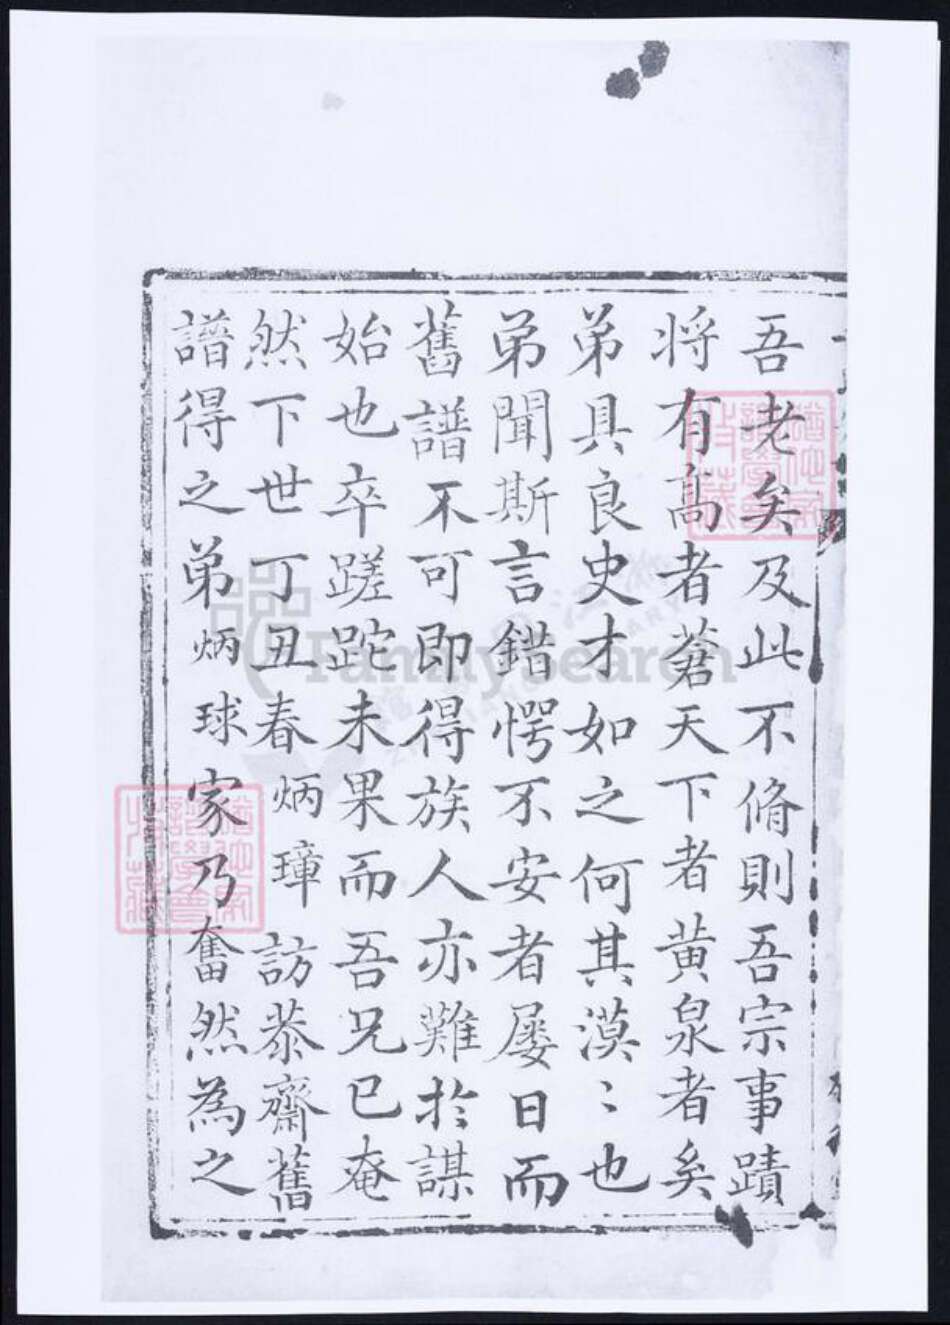 吾老矣及此不脩則吾宗事蹟
將有高者蒼天下者黄泉者矣
弟具良史才如之何其漠〻也
弟聞斯言錯愕不安者屡日而
舊譜不可即得族人亦難於謀
始也卒蹉跎未果而吾兄已奄
然下世丁丑春炳璋訪恭齋舊
譜得之弟炳球家乃奮然為之
FamilySearch